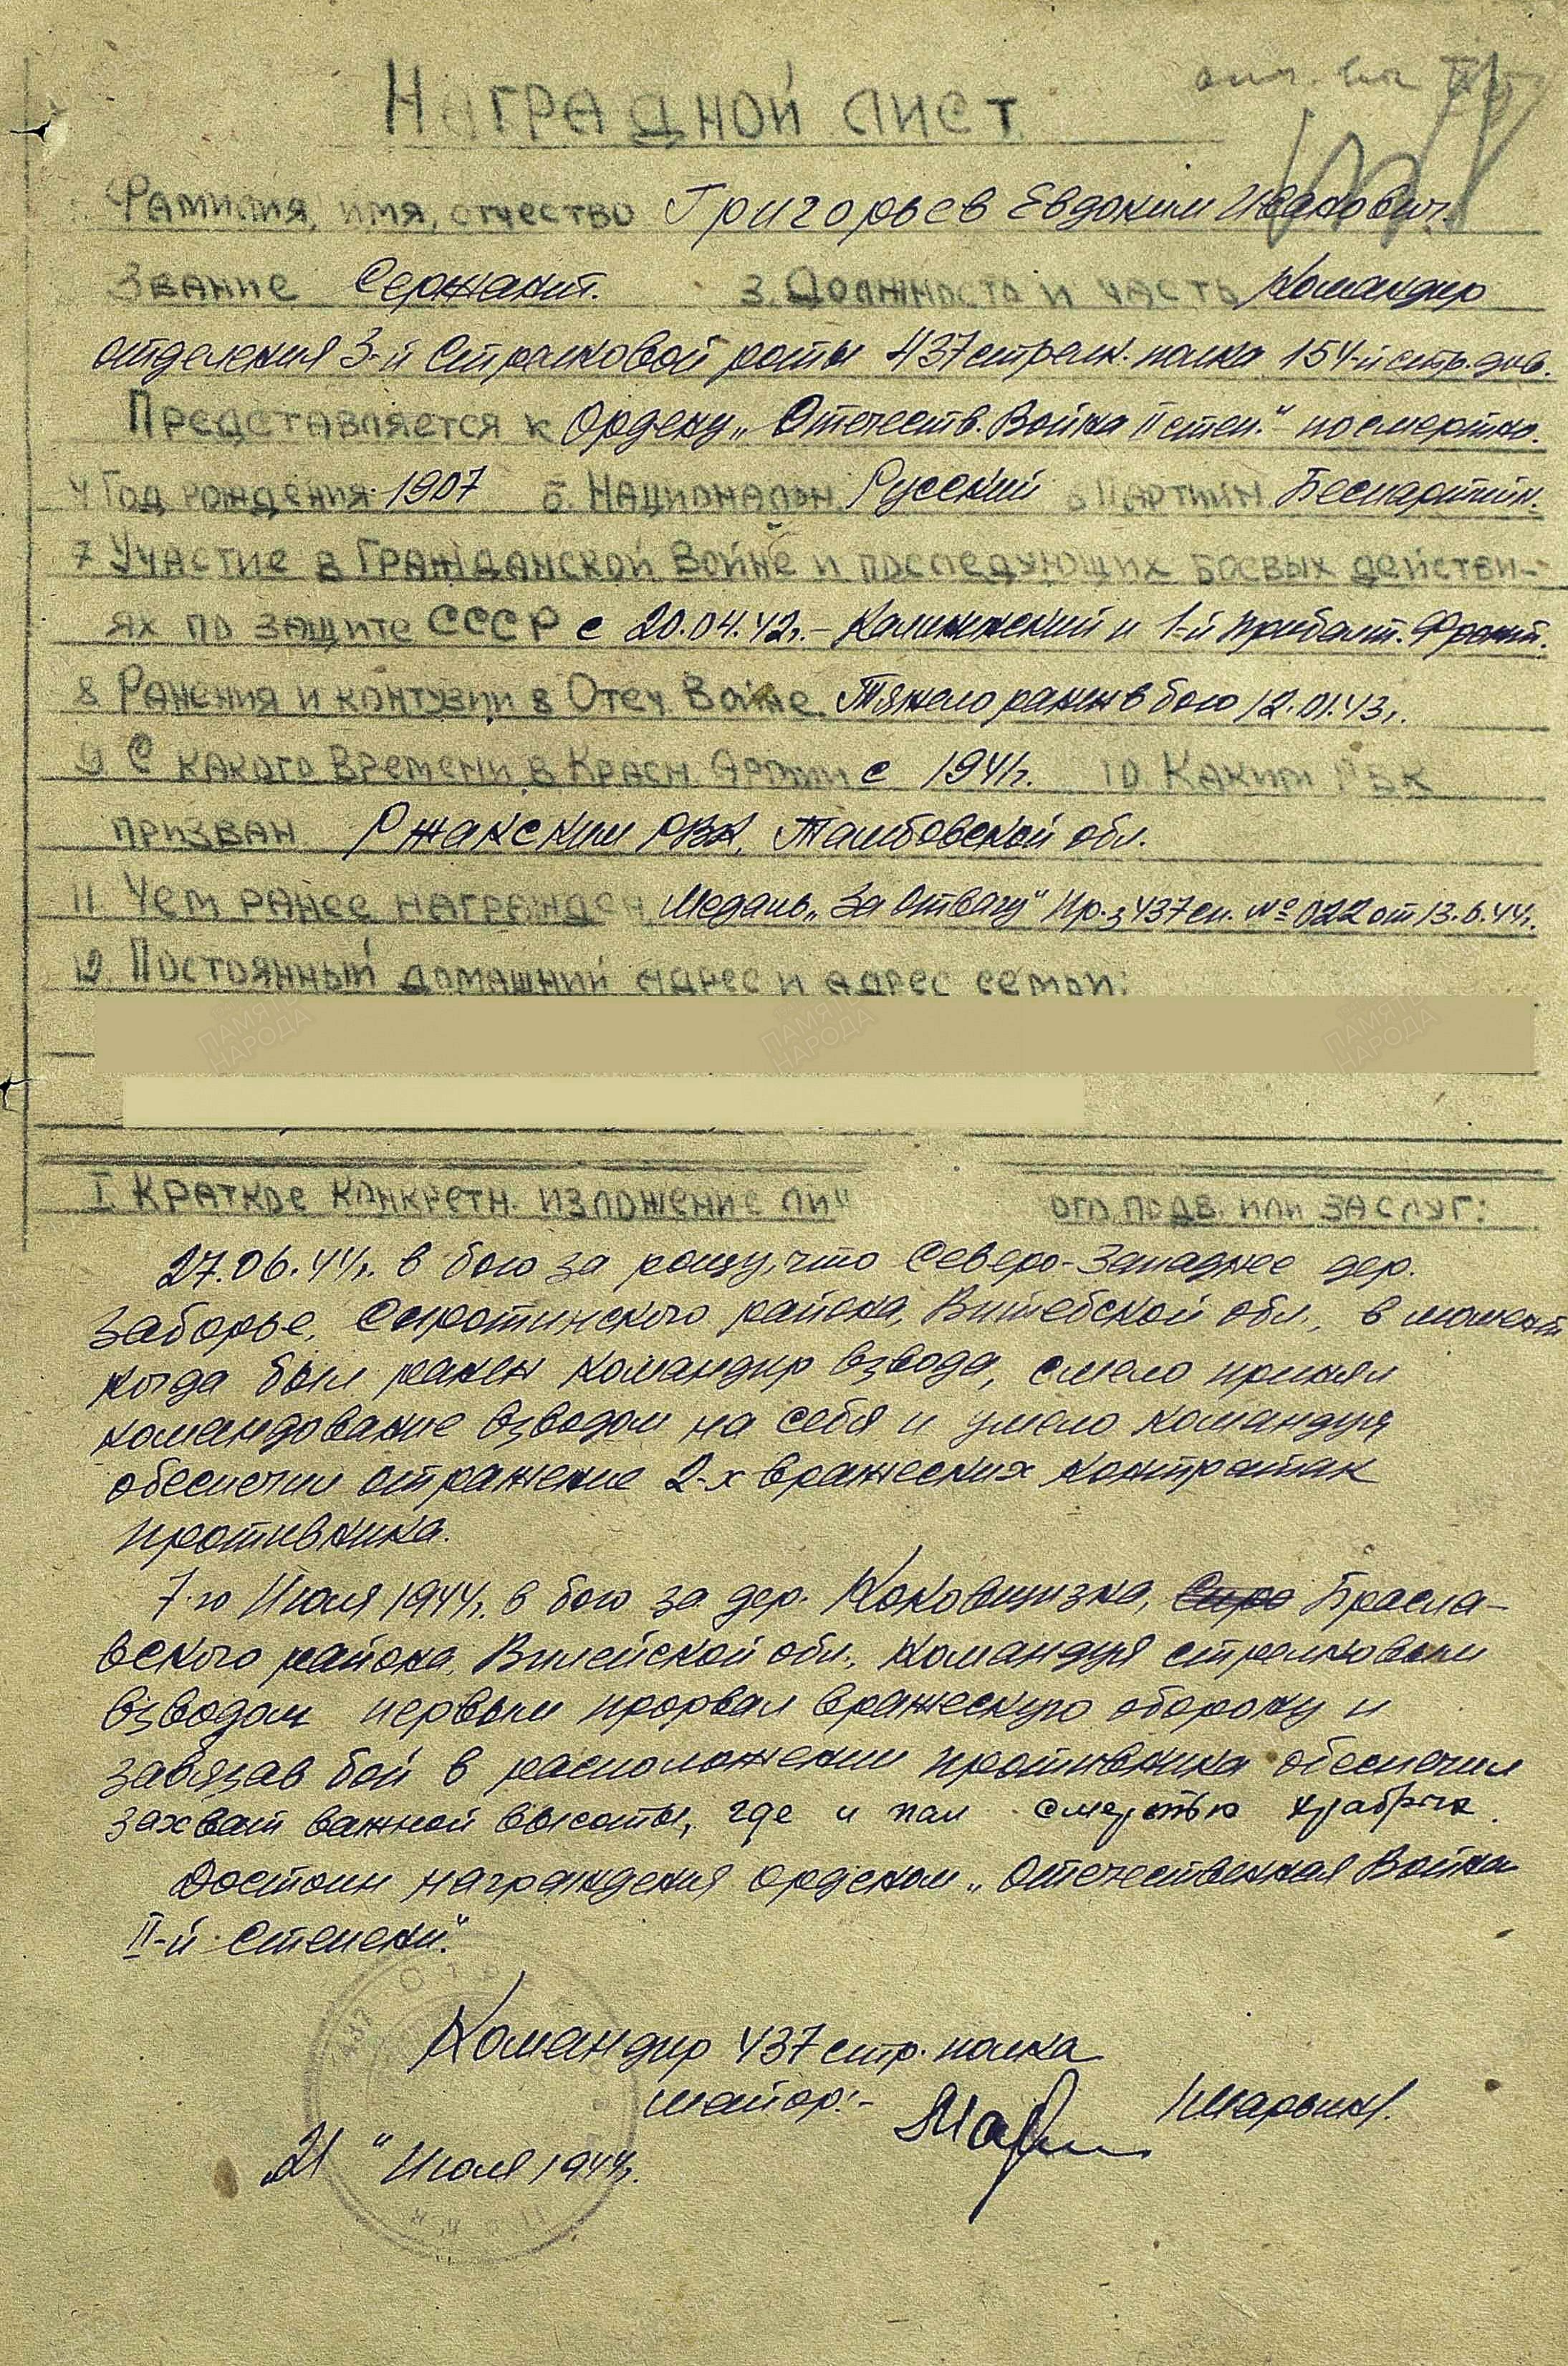 Наградной лист
Фамилия, имя, отчество Григорьев Евдоким Иванович.
Звание Сержант. 3. Должность и часть Командир
отделения 3-й Стрелковой роты 437 стрелк. полка 154-й стр. див.
Представляется к Ордену „Отечеств. Война II степ." посмертно.
4 Год рождения 1907 5. Национальн. Русский 6 Партийн. Беспартийн.
7 Участие в Гражданской Войне и последующих боевых действи-
ях по защите СССР с 20.04.42г. - Калининский и 1-й Прибалт. Фронт.
8 Ранения и контузии в Отеч Войне. Тяжело ранен в бою 12.01.43г.
9 С какого времени в Красн. Армии с 1941г. 10 Каким РВК
призван Ржакским РВК, Тамбовской обл.
11. Чем ранее награжден Медаль „За Отвагу" Пр. 437 сп. № 022 от 13.6.44г.
12. Постоянный домашний адрес и адрес семьи:
ПАМЯТЬ НАРОДА ПАМЯТЬ НАРОДА ПАМЯТЬ НАРОДА
I. Краткое конкретн. изложение лич ого подв. или заслуг:
27.06.44г. в бою за рощу, что Северо-Западнее дер.
Заборье, Сиротинского района, Витебской обл., в момент
когда был ранен командир взвода, смело принял
командование взводом на себя и умело командуя
обеспечил отражение 2-х вражеских контратак
противника.
7-го Июля 1944г. в бою за дер. Коковщизна, Брасла-
вского района, Вилейской обл., командуя стрелковым
взводом первым прорвал вражескую оборону и
завязав бой в расположении противника обеспечил
захват важной высоты, где и пал смертью храбрых.
Достоин награждения орденом „Отечественная Война
II-й Степени".
Командир 437 стр. полка
майор:- /Марьин/.
„21" Июля 1944г.